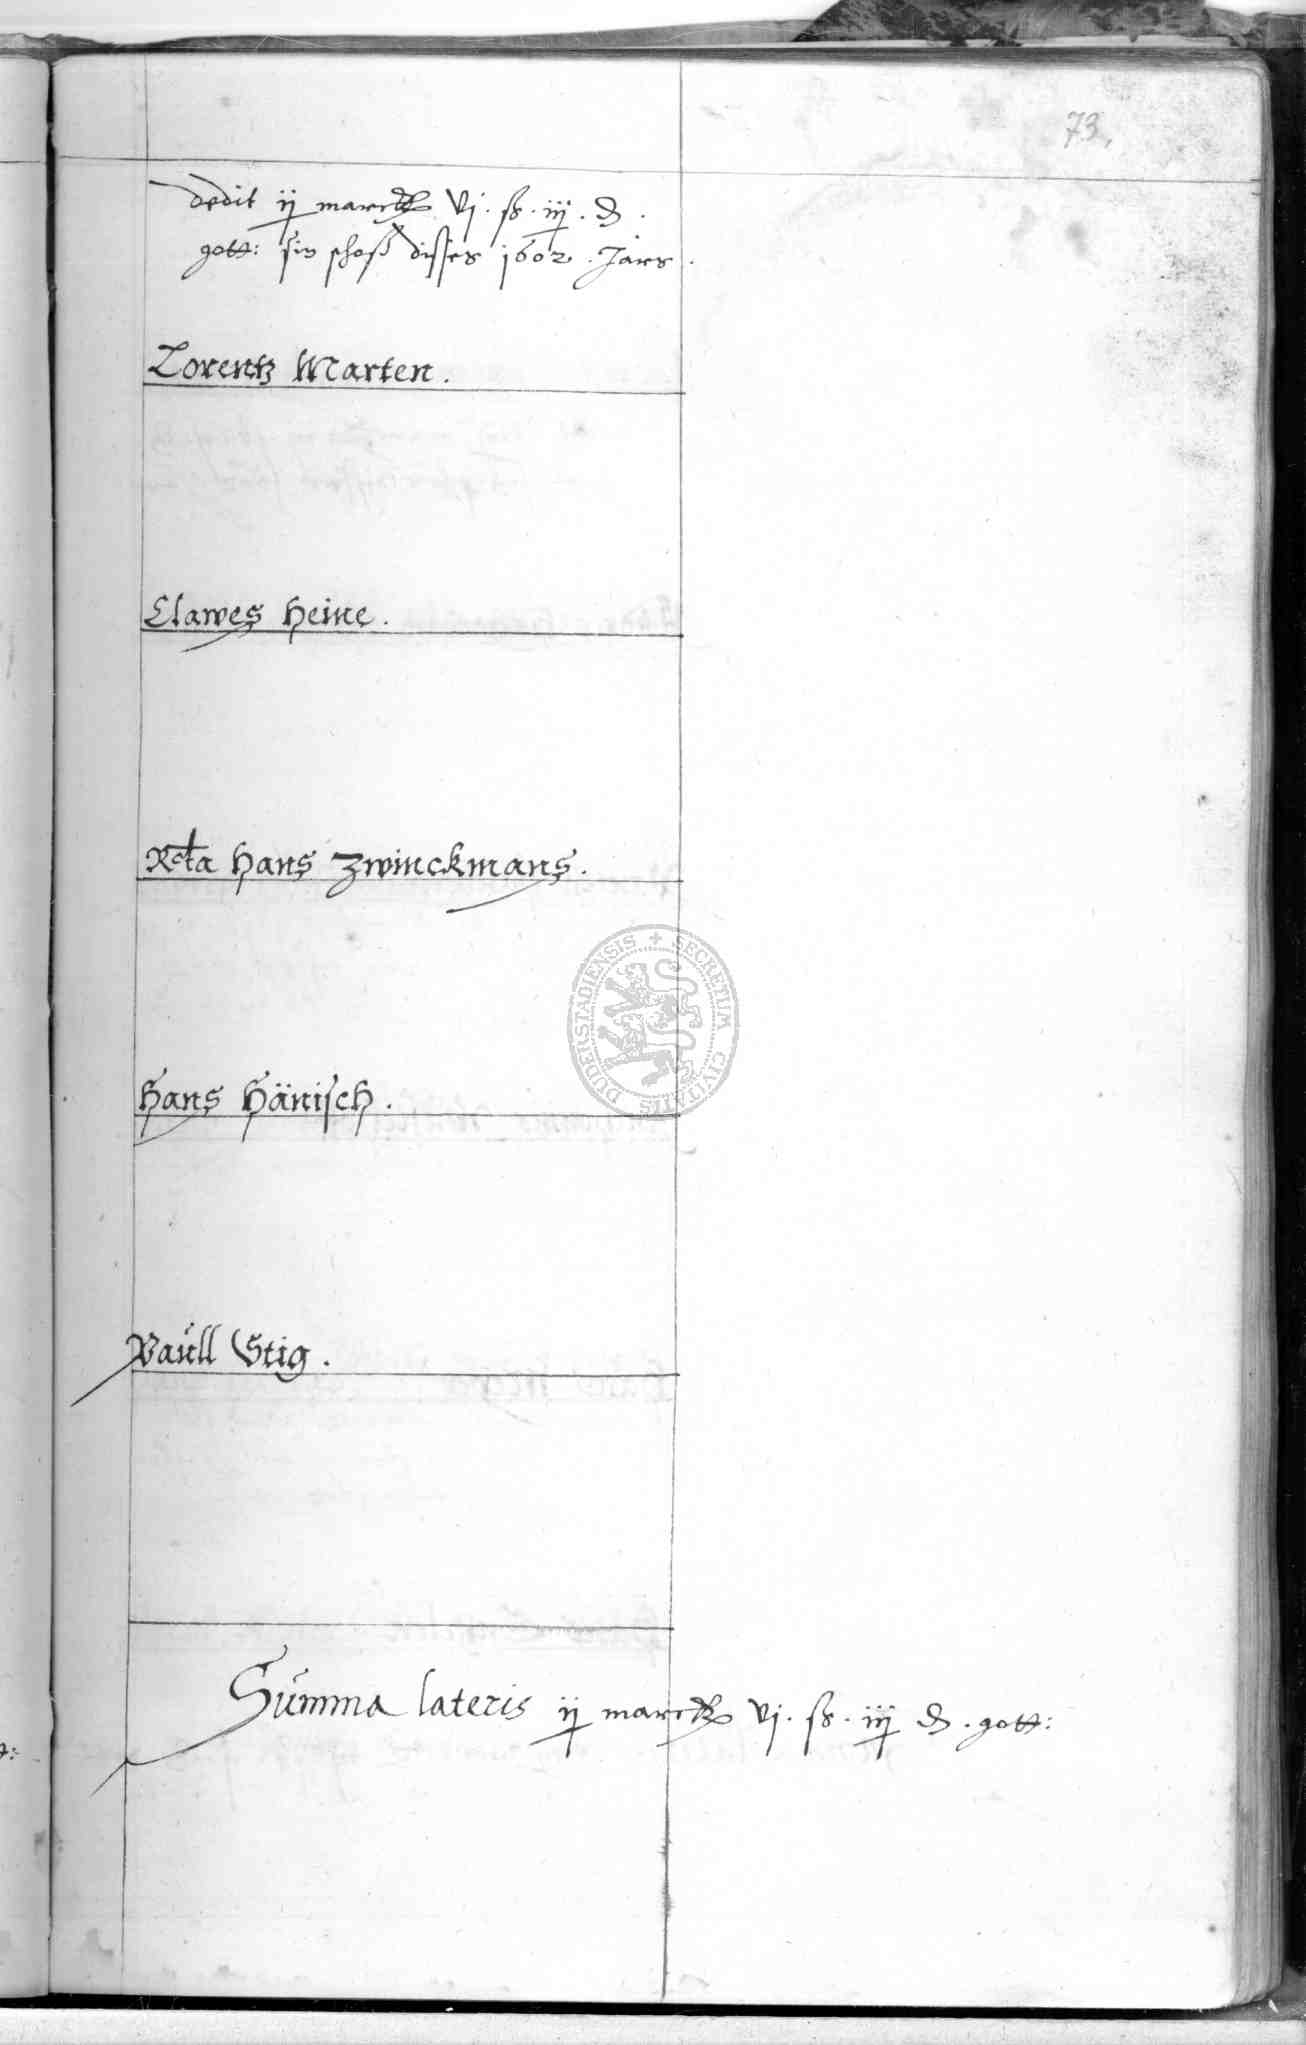 73.
dedit ij marck vj. ß. iij. d.
gott: sin schoß disses 1602. Jars.
Lorentz Marten.
Clawes Heine.
Rcta Hans Zwinckmans.
SECRETUM CIVITATIS DUDERSTADIENSIS
Hans Hänisch.
Paull Stig.
Summa lateris ij marck vj. ß. iij d. gott: